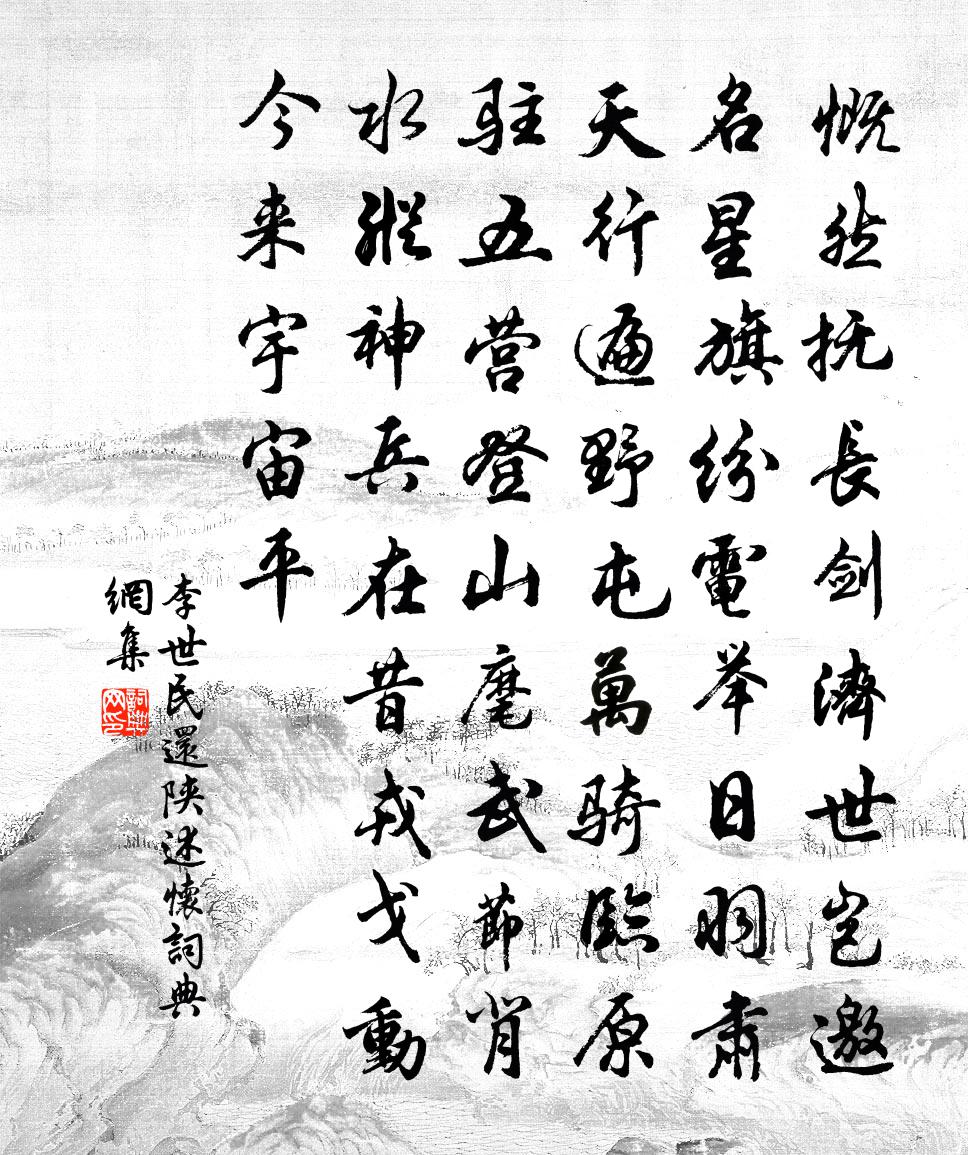 慨然抚長剑濟世岂邀
名星旗纷電举日羽肃
天行遍野屯萬騎臨原
駐五营登山麾武節背
水縱神兵在昔戎戈動
今来宇宙平
李世民還陝述懷詞典
網集
詞典網印